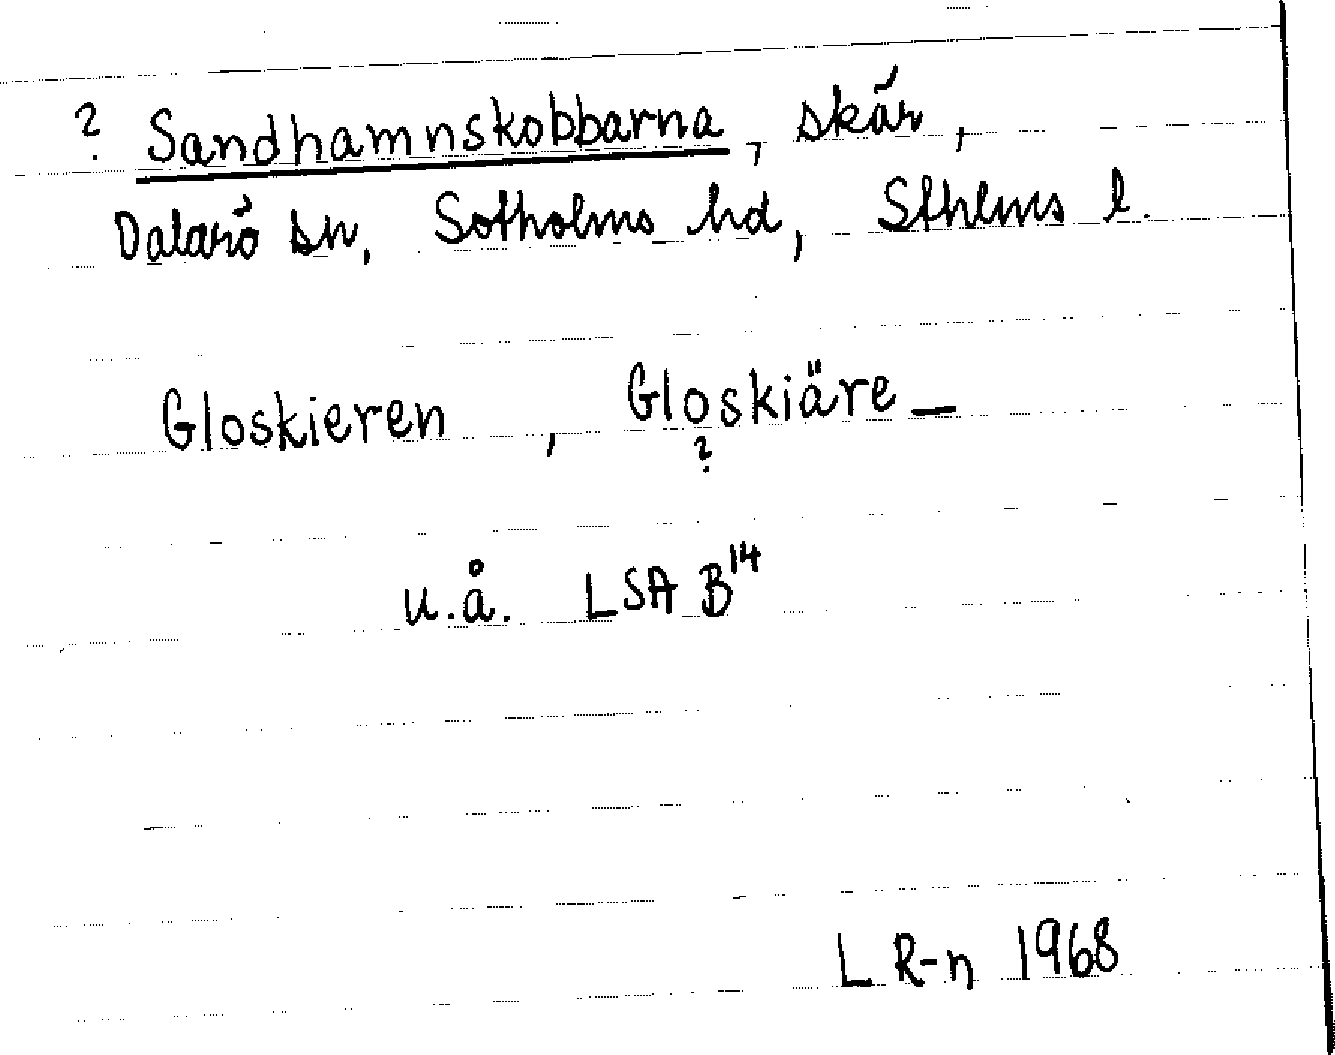 ? Sandhamnskobbarna, skär,
Dalarö sn, Sotholms hd, Sthlms l.
Gloskieren, Gloskiäre–
?
u.å. LSA B14
L R-n 1968